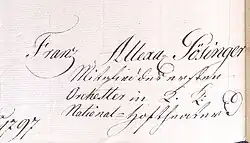 Franz Allexa Pösinger
Mitglied des ersten
Orchester in K. K.
National-Hoftheater
1797